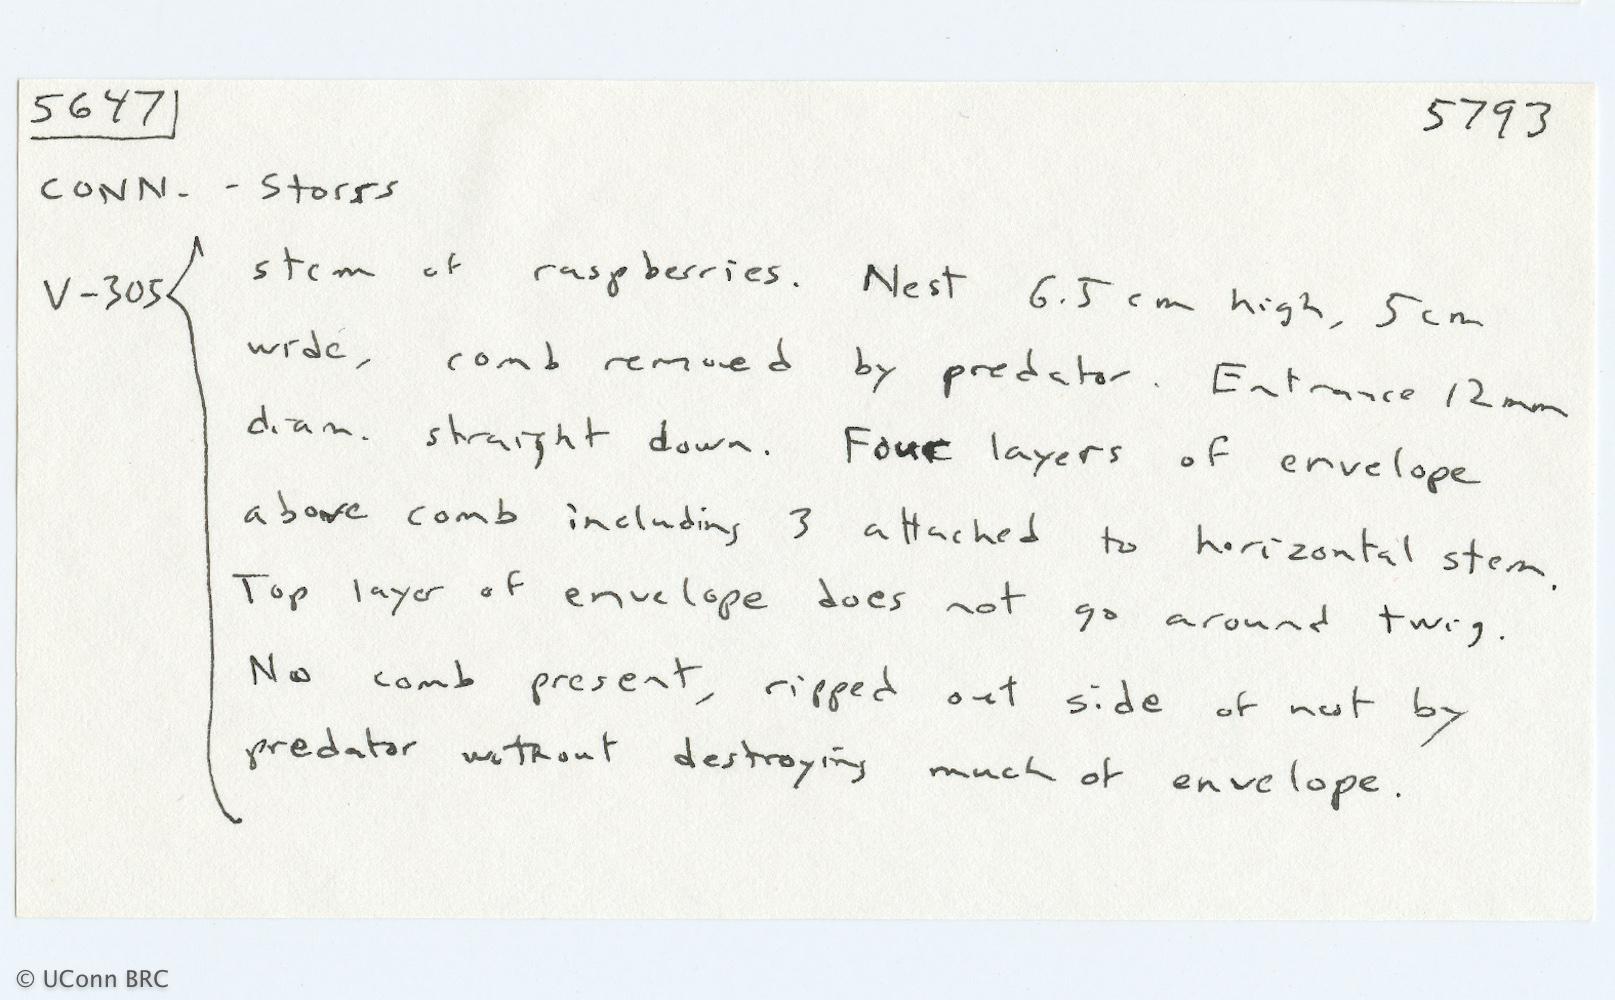 5647 5793
CONN. - Storrs
V-305 stem of raspberries. Nest 6.5 cm high, 5 cm
wide, comb removed by predator. Entrance 12mm
diam. straight down. Four layers of envelope
above comb including 3 attached to horizontal stem.
Top layer of envelope does not go around twig.
No comb present, ripped out side of nest by
predator without destroying much of envelope.
© UConn BRC